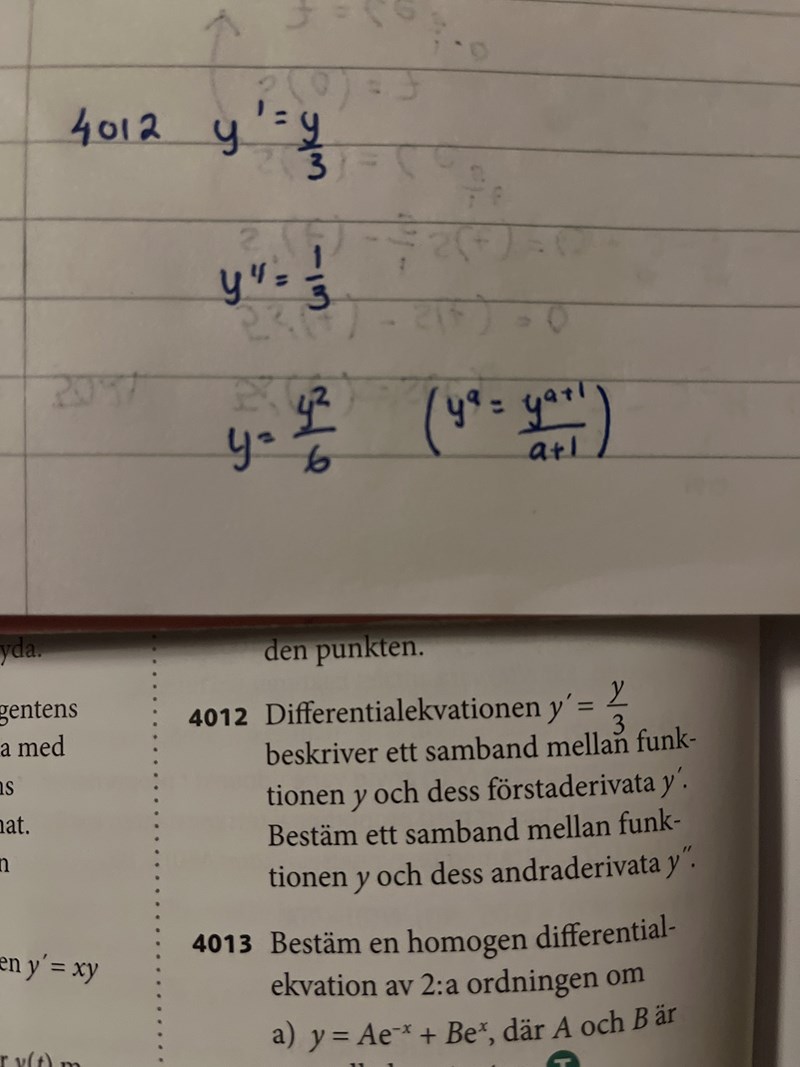 4012 y' = y/3
y'' = 1/3
y = y²/6 (yᵃ = yᵃ⁺¹/a+1)
yda.
gentens
a med
ns
nat.
n
en y′ = xy
den punkten.
4012 Differentialekvationen y′ = y/3
beskriver ett samband mellan funk-
tionen y och dess förstaderivata y′.
Bestäm ett samband mellan funk-
tionen y och dess andraderivata y″.
4013 Bestäm en homogen differential-
ekvation av 2:a ordningen om
a) y = Ae⁻ˣ + Beˣ, där A och B är